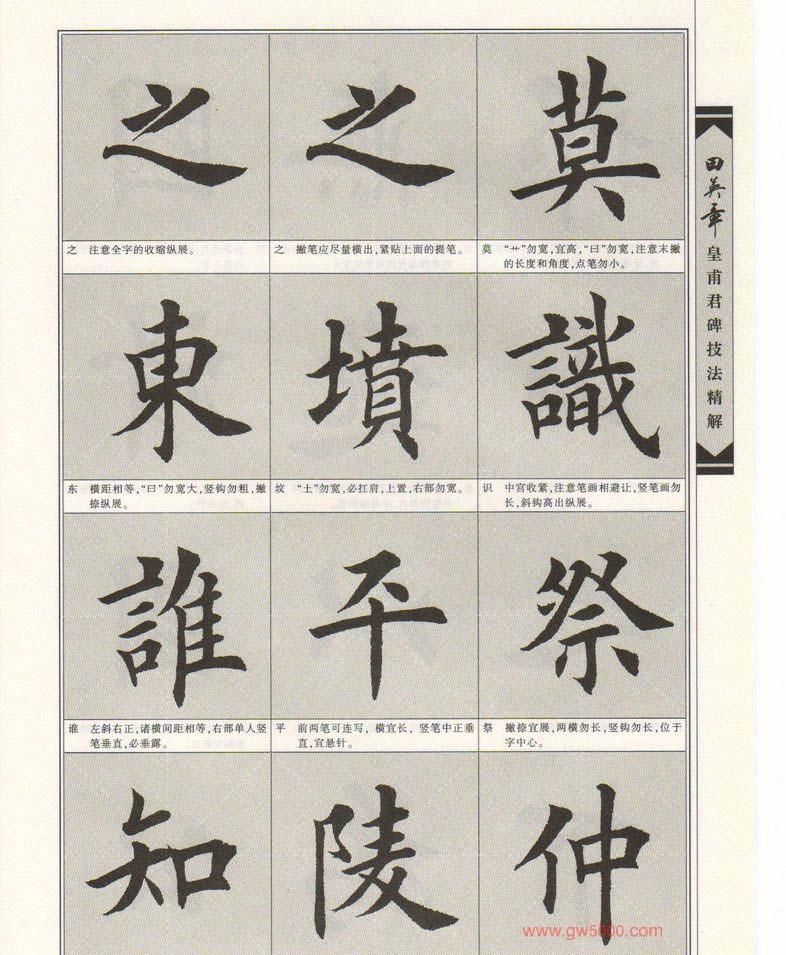 田英章皇甫君碑技法精解
莫
莫 “艹”勿宽,宜高,“曰”勿宽,注意末撇
的长度和角度,点笔勿小。
識
识 中宫收紧,注意笔画相避让,竖笔画勿
长,斜钩高出纵展。
祭
祭 撇捺宜展,两横勿长,竖钩勿长,位于
字中心。
仲
之
之 撇笔应尽量横出,紧贴上面的提笔。
墳
坟 “土”勿宽,必扛肩,上置,右部勿宽。
平
平 前两笔可连写,横宜长,竖笔中正垂
直,宜悬针。
陵
之
之 注意全字的收缩纵展。
東
东 横距相等,“曰”勿宽大,竖钩勿粗,撇
捺纵展。
誰
谁 左斜右正,诸横间距相等,右部单人竖
笔垂直,必垂露。
知
www.gw5000.com